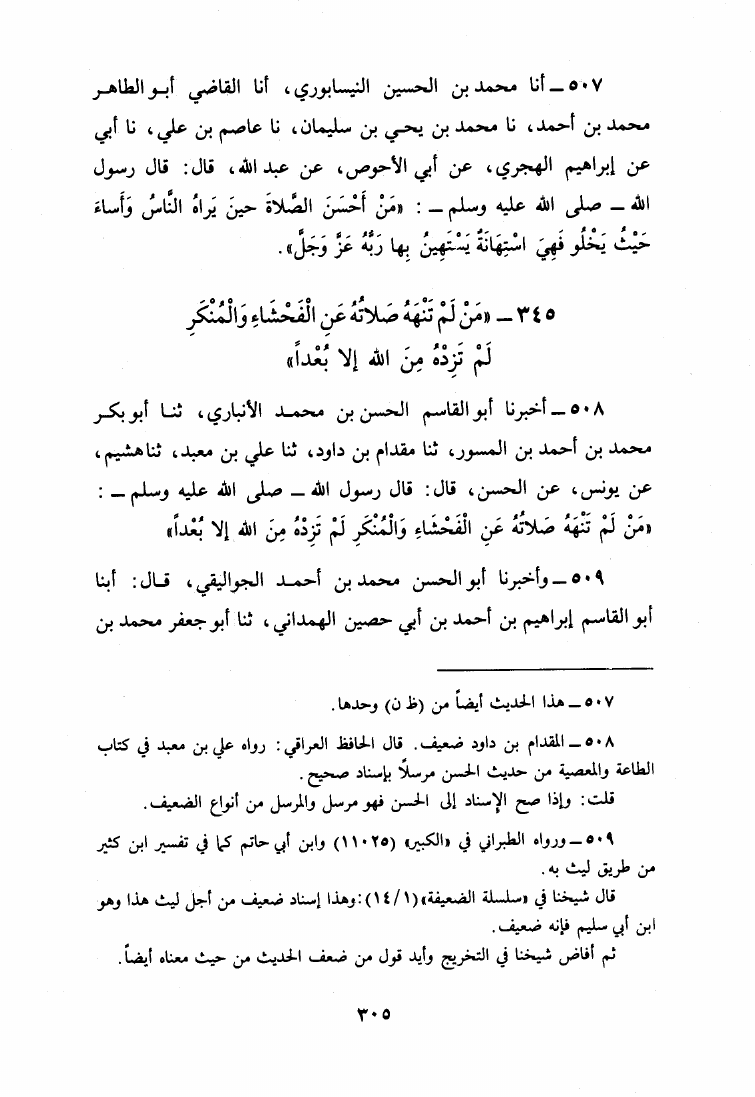 ٥٠٧ ــ أنا محمد بن الحسين النيسابوري، أنا القاضي أبو الطاهر
محمد بن أحمد، نا محمد بن يحيى بن سليمان، نا عاصم بن علي، نا أبي
عن إبراهيم الهجري، عن أبي الأحوص، عن عبد الله، قال: قال رسول
الله ــ صلى الله عليه وسلم ــ : «مَنْ أَحْسَنَ الصَّلاةَ حينَ يَراهُ النَّاسُ وَأَساءَ
حَيْثُ يَخْلُو فَهِيَ اسْتِهَانَةٌ يَسْتَهِينُ بِها رَبَّهُ عَزَّ وَجَلَّ».
٣٤٥ ــ «مَنْ لَمْ تَنْهَهُ صَلاتُهُ عَنِ الْفَحْشَاءِ وَالْمُنْكَرِ
لَمْ تَزِدْهُ مِنَ الله إلا بُعْداً»
٥٠٨ ــ أخبرنا أبو القاسم الحسن بن محمد الأنباري، ثنا أبو بكر
محمد بن أحمد بن المسور، ثنا مقدام بن داود، ثنا علي بن معبد، ثنا هشيم،
عن يونس، عن الحسن، قال: قال رسول الله ــ صلى الله عليه وسلم ــ :
«مَنْ لَمْ تَنْهَهُ صَلاتُهُ عَنِ الْفَحْشَاءِ وَالْمُنْكَرِ لَمْ تَزِدْهُ مِنَ الله إلا بُعْداً»
٥٠٩ ــ وأخبرنا أبو الحسن محمد بن أحمد الجواليقي، قال: أبنا
أبو القاسم إبراهيم بن أحمد بن أبي حصين الهمداني، ثنا أبو جعفر محمد بن
٥٠٧ ــ هذا الحديث أيضاً من (ظ ن) وحدها.
٥٠٨ ــ المقدام بن داود ضعيف. قال الحافظ العراقي: رواه علي بن معبد في كتاب
الطاعة والمعصية من حديث الحسن مرسلاً بإسناد صحيح.
قلت: وإذا صح الإسناد إلى الحسن فهو مرسل والمرسل من أنواع الضعيف.
٥٠٩ ــ ورواه الطبراني في «الكبير» (١١٠٢٥) وابن أبي حاتم كما في تفسير ابن كثير
من طريق ليث به.
قال شيخنا في «سلسلة الضعيفة» (١٤/١): وهذا إسناد ضعيف من أجل ليث هذا وهو
ابن أبي سليم فإنه ضعيف.
ثم أفاض شيخنا في التخريج وأيد قول من ضعف الحديث من حيث معناه أيضاً.
٣٠٥